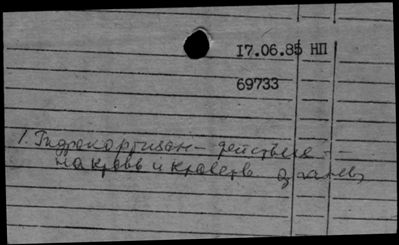 17.06.85 НП
69733
1. Гидрокортизон – действие
на кровь и кроветв. органы